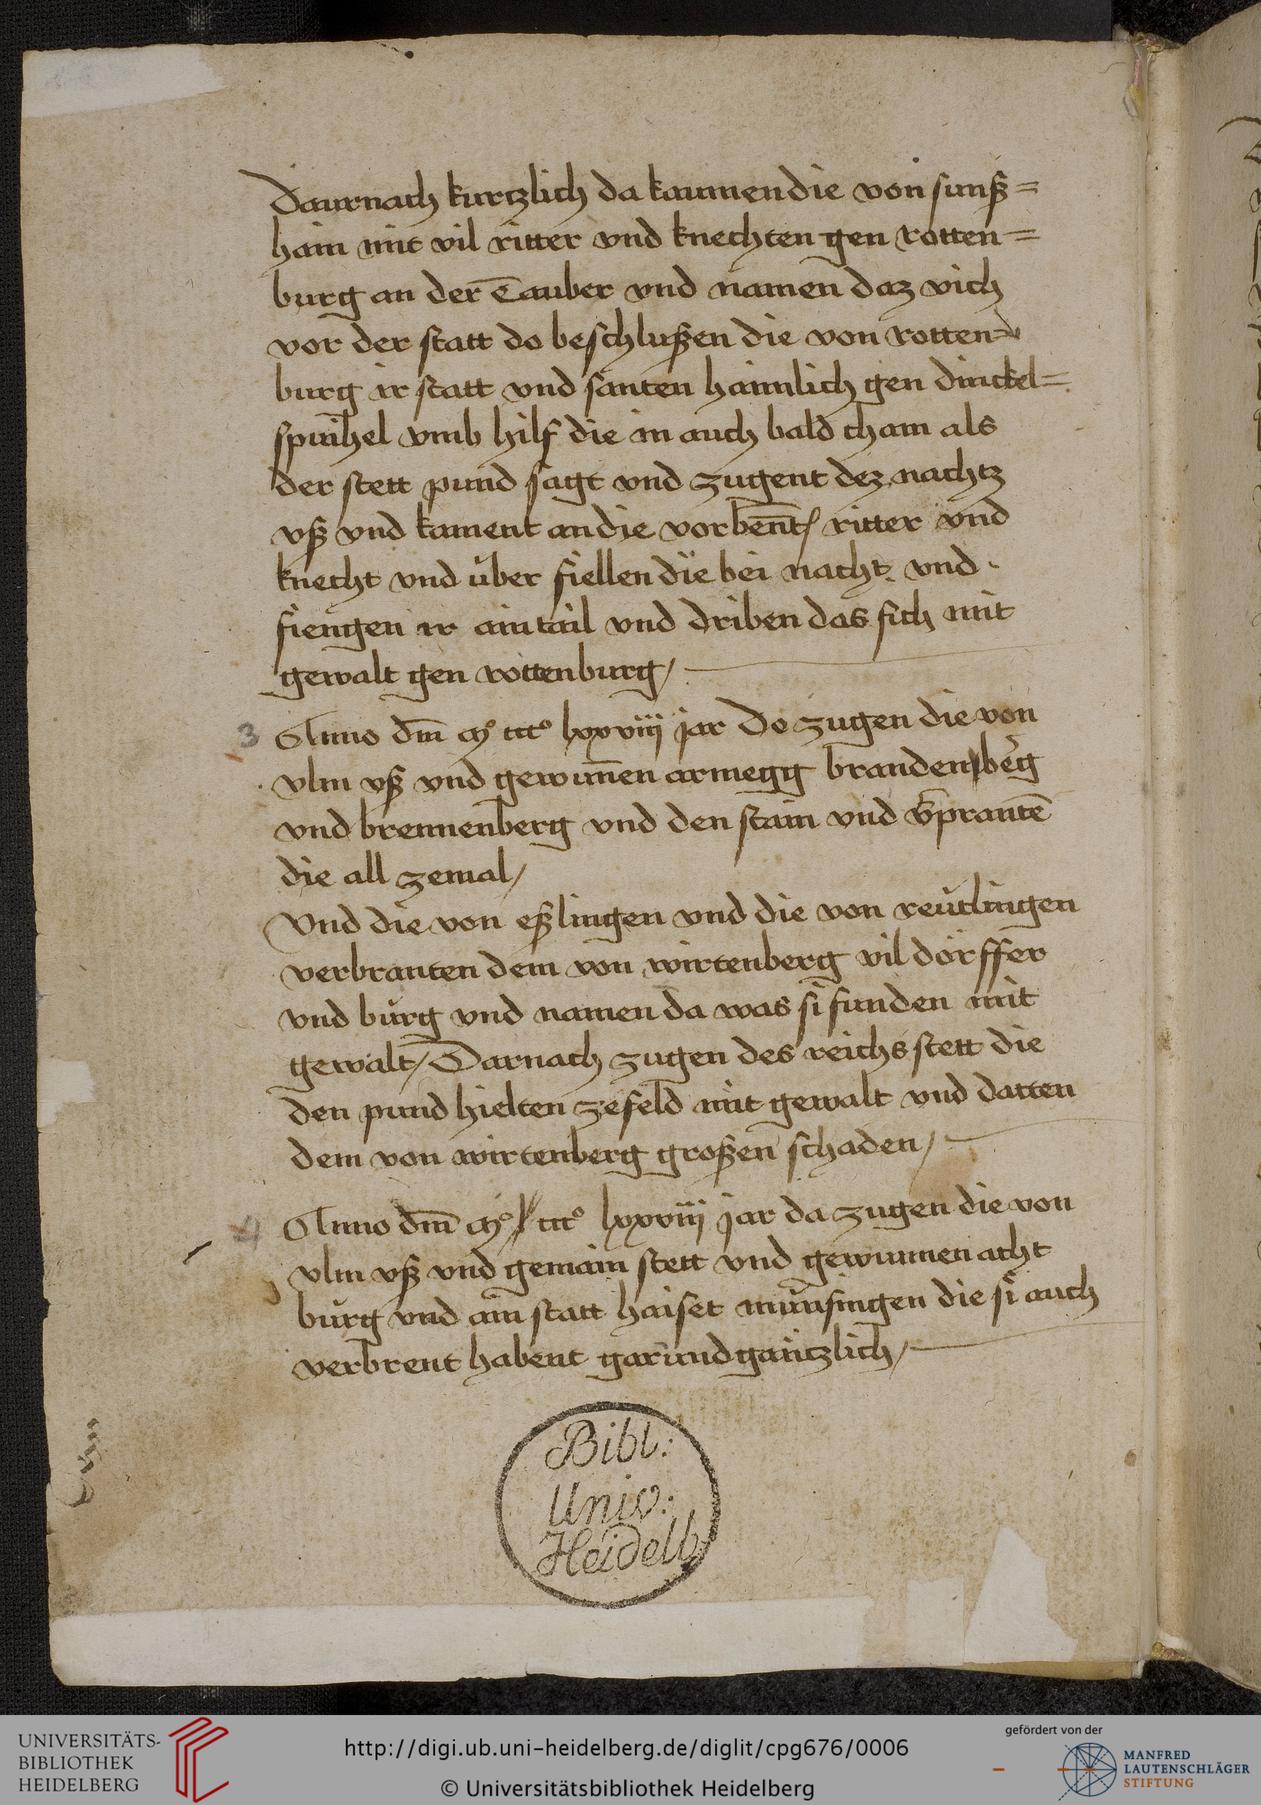 Daurnach kurtzlich da kaumen die von sunß=
hain mit vil ritter vnd knechten gen rotten=
burg an der Tauber vnd namen daz vich
vor der statt do beschlußen die von rotten=
burg ir statt vnd santen haimlich gen dinckel=
spuhel vmb hilf die in auch bald cham als
der stett pund sagt vnd zugent dez nachtz
vß vnd kament an die ritter vnd
knecht vnd über fiellen die bei nacht vnd
fiengen ir ain tail vnd driben das fich mit
gewalt gen rottenburg/
3 Anno dm̄ mͦ cccͦ lxxviij jar Do zugen die von
vlm vß vnd gewunnen armegg brandenberg
vnd brennenberg vnd den stain vnd v̄prantē
die all zemal/
Vnd die von eßlingen vnd die von reutlingen
verbranten dem von wirtenberg vil dörffer
vnd bürg vnd namen da was si funden mit
gewalt/ Darnach zugen des reichs stett die
den pund hielten zefeld mit gewalt vnd datten
dem von wirtenberg großen schaden/
4 Anno dm̄ mͦ cccͦ lxxviij jar da zugen die von
vlm vß vnd gemain stett vnd gewunnen acht
bürg vnd ain statt haiset münsingen die si auch
verbrent habent gar und gantzlich/
Bibl:
Univ:
Heidelb.
UNIVERSITÄTS-
BIBLIOTHEK
HEIDELBERG
http://digi.ub.uni-heidelberg.de/diglit/cpg676/0006
© Universitätsbibliothek Heidelberg
gefördert von der
MANFRED
LAUTENSCHLÄGER
STIFTUNG